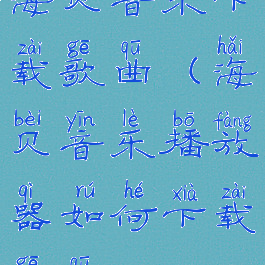 海贝音乐下
zài gē qū hǎi
载歌曲（海
bèi yīn lè bō fàng
贝音乐播放
qì rú hé xià zài
器如何下载
gē qū